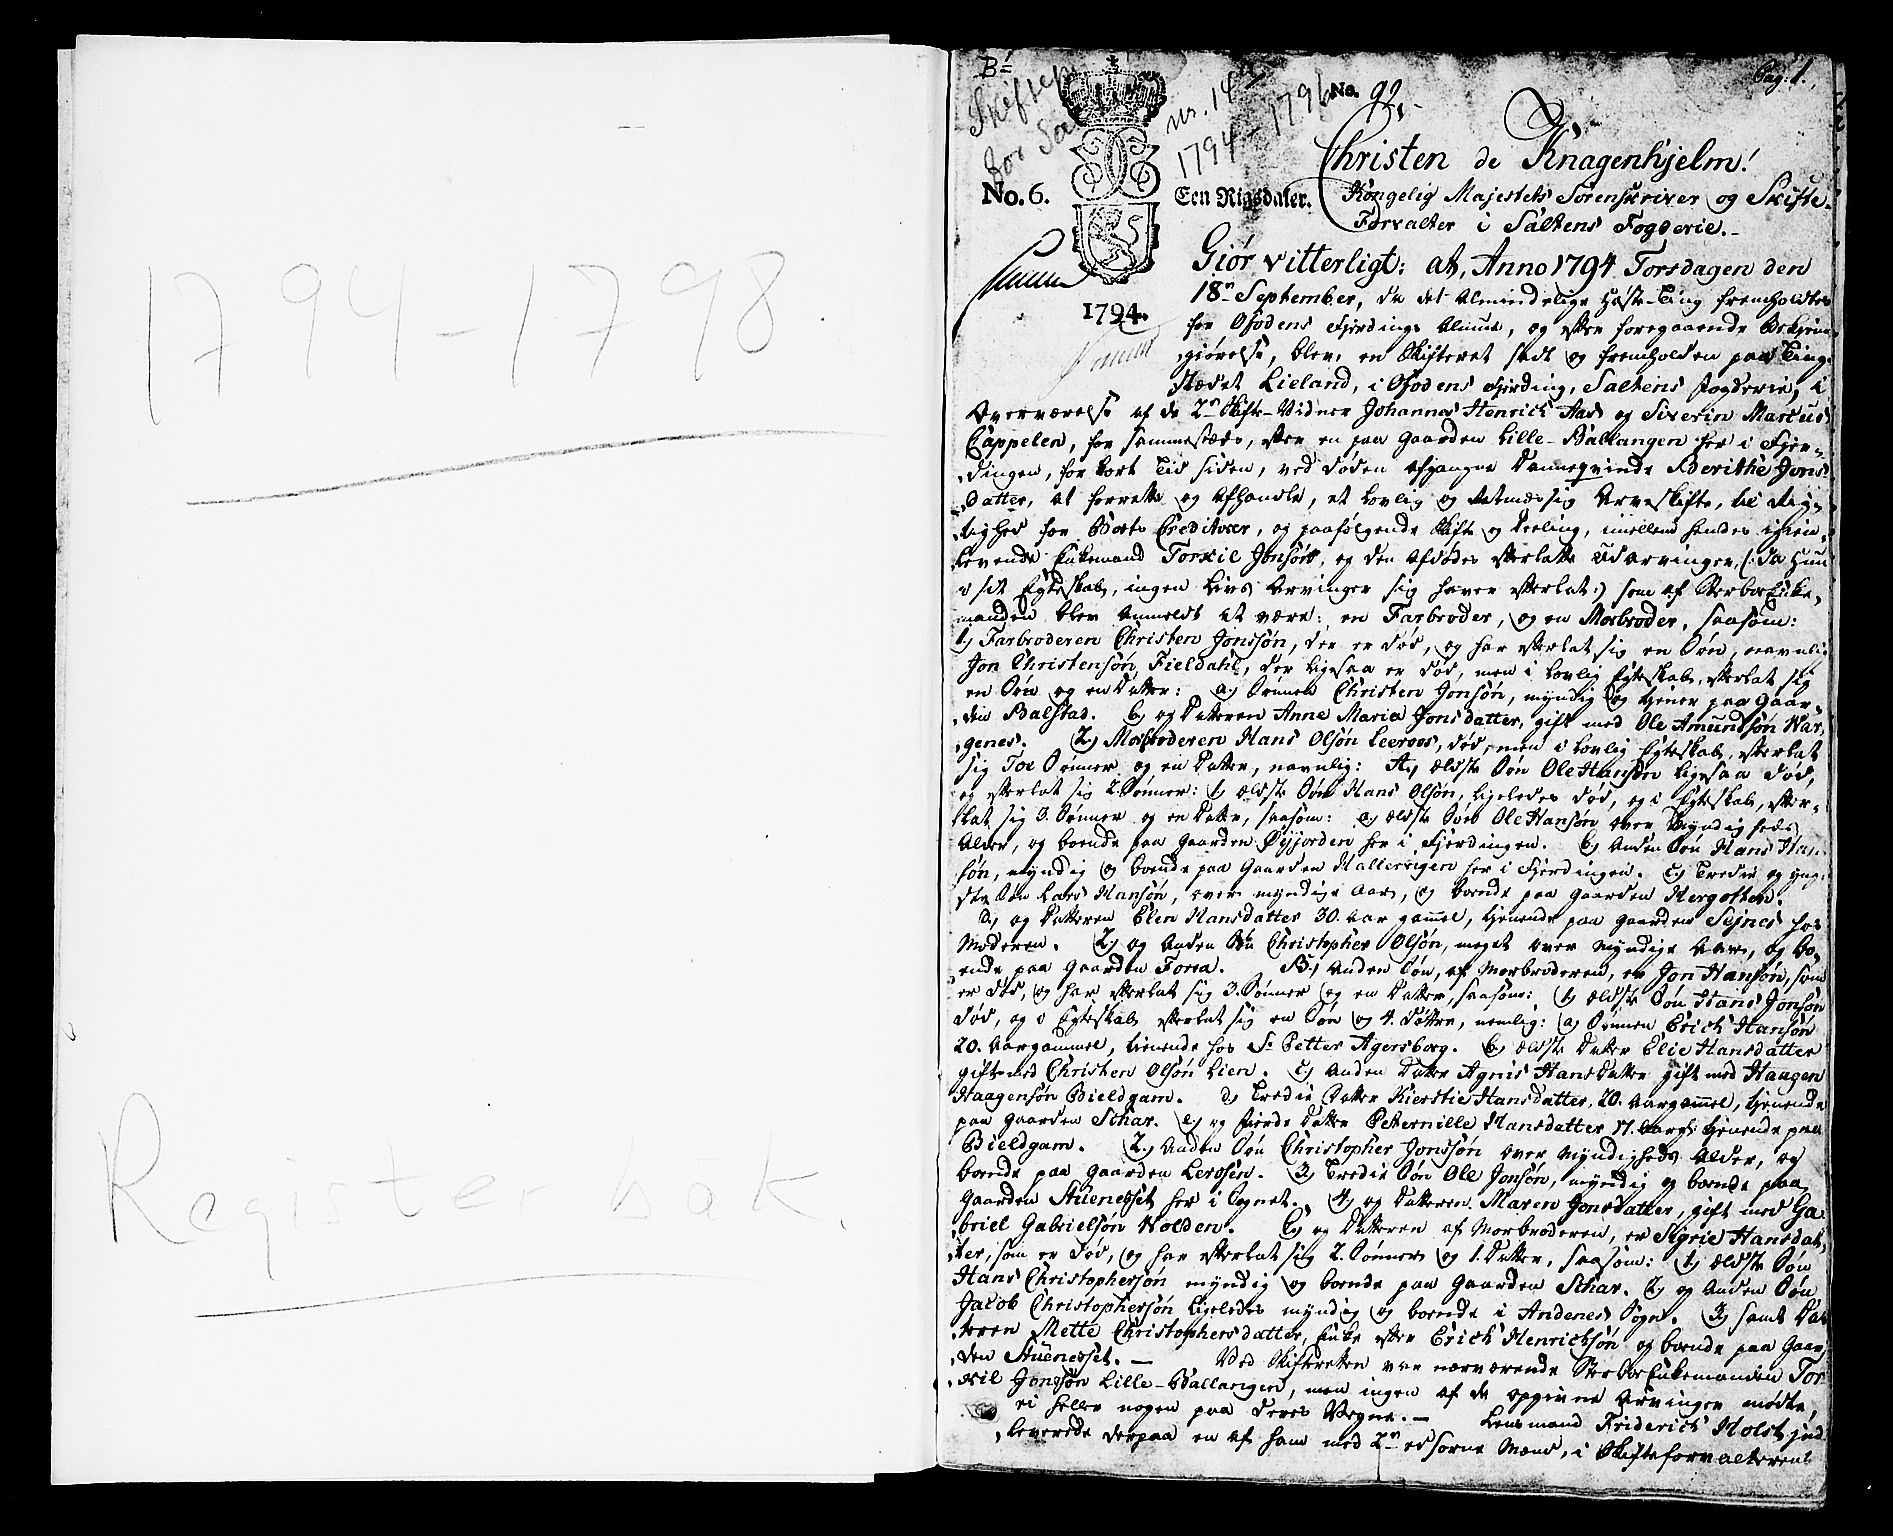 1794-1798.
Register bak.
B=
Pag: 1.
Skiftep
nr. 14
for Sal
1794-1796
No. 92.
No. 6.
Een Rigsdaler.
1794.
Christen de Knagenhjelm!
Kongelig Majestets Sorenskriver og Skifte-
Forvalter i Saltens Fogderie.
Giør vitterligt: at, Anno 1794 Torsdagen den
18n September, da det Almindelige Høste-Ting fremholdtes
for Ofodens Fjerdings Almue, og efter foregaaende Bekjent-
giørelse, blev en Skifteret sadt og fremholden paa Ting-
stædet Lieland, i Ofodens Fjerding, Saltens Fogderie, i
Overværelse af de 2n Skifte-Vidner Johannes Henrich Aas og Siverin Marcus
Cappelen, for sammestæds, efter en paa Gaarden Lille-Ballangen her i Fjer-
dingen, for kort Tid siden, ved Døden afgangne Dannequinde Berithe Jons
Datter, at forrette og Afhandle, et Lovlig og Retmæssig Arveskifte, til Rig-
tighed for Boets Creditorer, og paafølgende Skifte og Deeling, imellem hendes igien-
levende Enkemand Torkil Jonsøn, og den Afdødes efterlatte Udarvinger, (: da Hun
i sit Egteskab, ingen Livs Arvinger sig haver efterlat :) som af Sterboe Enke-
manden blev anmeldt at være: en Farbroder, og en Morbroder, saasom:
1) Farbroderen Christen Jonssøn, der er død, og har efterlat sig en Søn, navnlig
Jon Christensøn Fieldahl, der ligesaa er død, men i Lovlig Egteskab, efterlat sig
en Søn og en Datter: a) Sønnen Christen Jonsøn, myndig og tjener paa Gaar-
den Balstad. b) og Datteren Anne Maria Jonsdatter, gift med Ole Amundsøn War-
genes. 2) Morbroderen Hans Olsøn Leeroos, død, men i Lovlig Egteskab, efterlat
sig Toe Sønner og en Datter, navnlig: A) ældste Søn Ole Hansøn ligesaa død,
og efterlat sig 2 Sønner: 1) ældste Søn Hans Olsøn, ligeledes død, og i Egteskab, efter-
latt sig 3. Sønner og en Datter, saasom: a) ældste Søn Ole Hansøn over Myndigheds
Alder, og boende paa Gaarden Øyjorden her i Fjerdingen. b) Anden Søn Hans Han-
søn, myndig og boende paa Gaarden Hallervigen her i Fjerdingen. c) Tredie og yng-
ste Søn Lars Hansøn, over myndige Aar, og boende paa Gaarden Hergotten.
d) og Datteren Elen Hansdatter 30. Aar gammel, tjenende paa Gaarden Sejnes hos
Moderen. 2) og Anden Søn Christopher Olsøn, meget over Myndige Aar, og bo-
ende paa Gaarden Forsa. B) Anden Søn, af Morbroderen, er Jon Hansøn, som
er død, og har efterlat sig 3. Sønner og en Datter, saasom: 1) ældste Søn Hans Jonsøn
død, og i Egteskab efterlat sig en Søn og 4. Døttre, nemlig: a) Sønnen Erich Hansøn
20. Aar gammel, tienende hos Sr Petter Agersborg. b) ældste Datter Elie Hansdatter
gift med Christen Olsøn Lien. c) Anden Datter Agnis Hansdatter gift med Haagen
Haagensøn Bieldgam. d) Tredie Datter Kierstie Hansdatter, 20. Aar gammel, tjenende
paa Gaarden Schar. e) og fierde Datter Peternille Hansdatter 17. Aar gl: tjenende paa
Bieldgam. 2) Anden Søn Christopher Jonssøn over Myndigheds Alder, og
boende paa Gaarden Lerosen. 3) Tredie Søn Ole Jonsøn, myndig og boende paa
Gaarden Stuenesset her i Sognet. 4) og Datteren Maren Jonsdatter, gift med Ga-
briel Gabrielsøn Wolden. C) og Datteren af Morbroderen, er Sigrie Hansdat-
ter, som er død, og har efterlat sig 2. Sønner og 1. Datter, saasom: 1) ældste Søn
Hans Christophersøn myndig og boende paa Gaarden Schar. 2) og Anden Søn
Jacob Christophersøn ligeledes myndig og boende i Andenes Sogn. 3) samt Dat-
teren Mette Christophersdatter, Enke efter Erich Henrichsøn og boende paa Gaar-
den Stuenesset. — Ved Skifteretten var nærværende Sterboe Enkemanden Tor-
kil Jonssøn Lille-Ballangen, men ingen af de opgivne Arvinger mødte,
ei heller nogen paa deres Vegne. — Lensmand Friderich Holst
leverede derpaa en af ham med 2n edsorne Mænd, i Skifteforvalterens